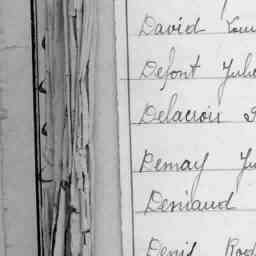 David Lou
Defont Juli
Delacroix
Demay Ju
Deniaud
Denis Rod